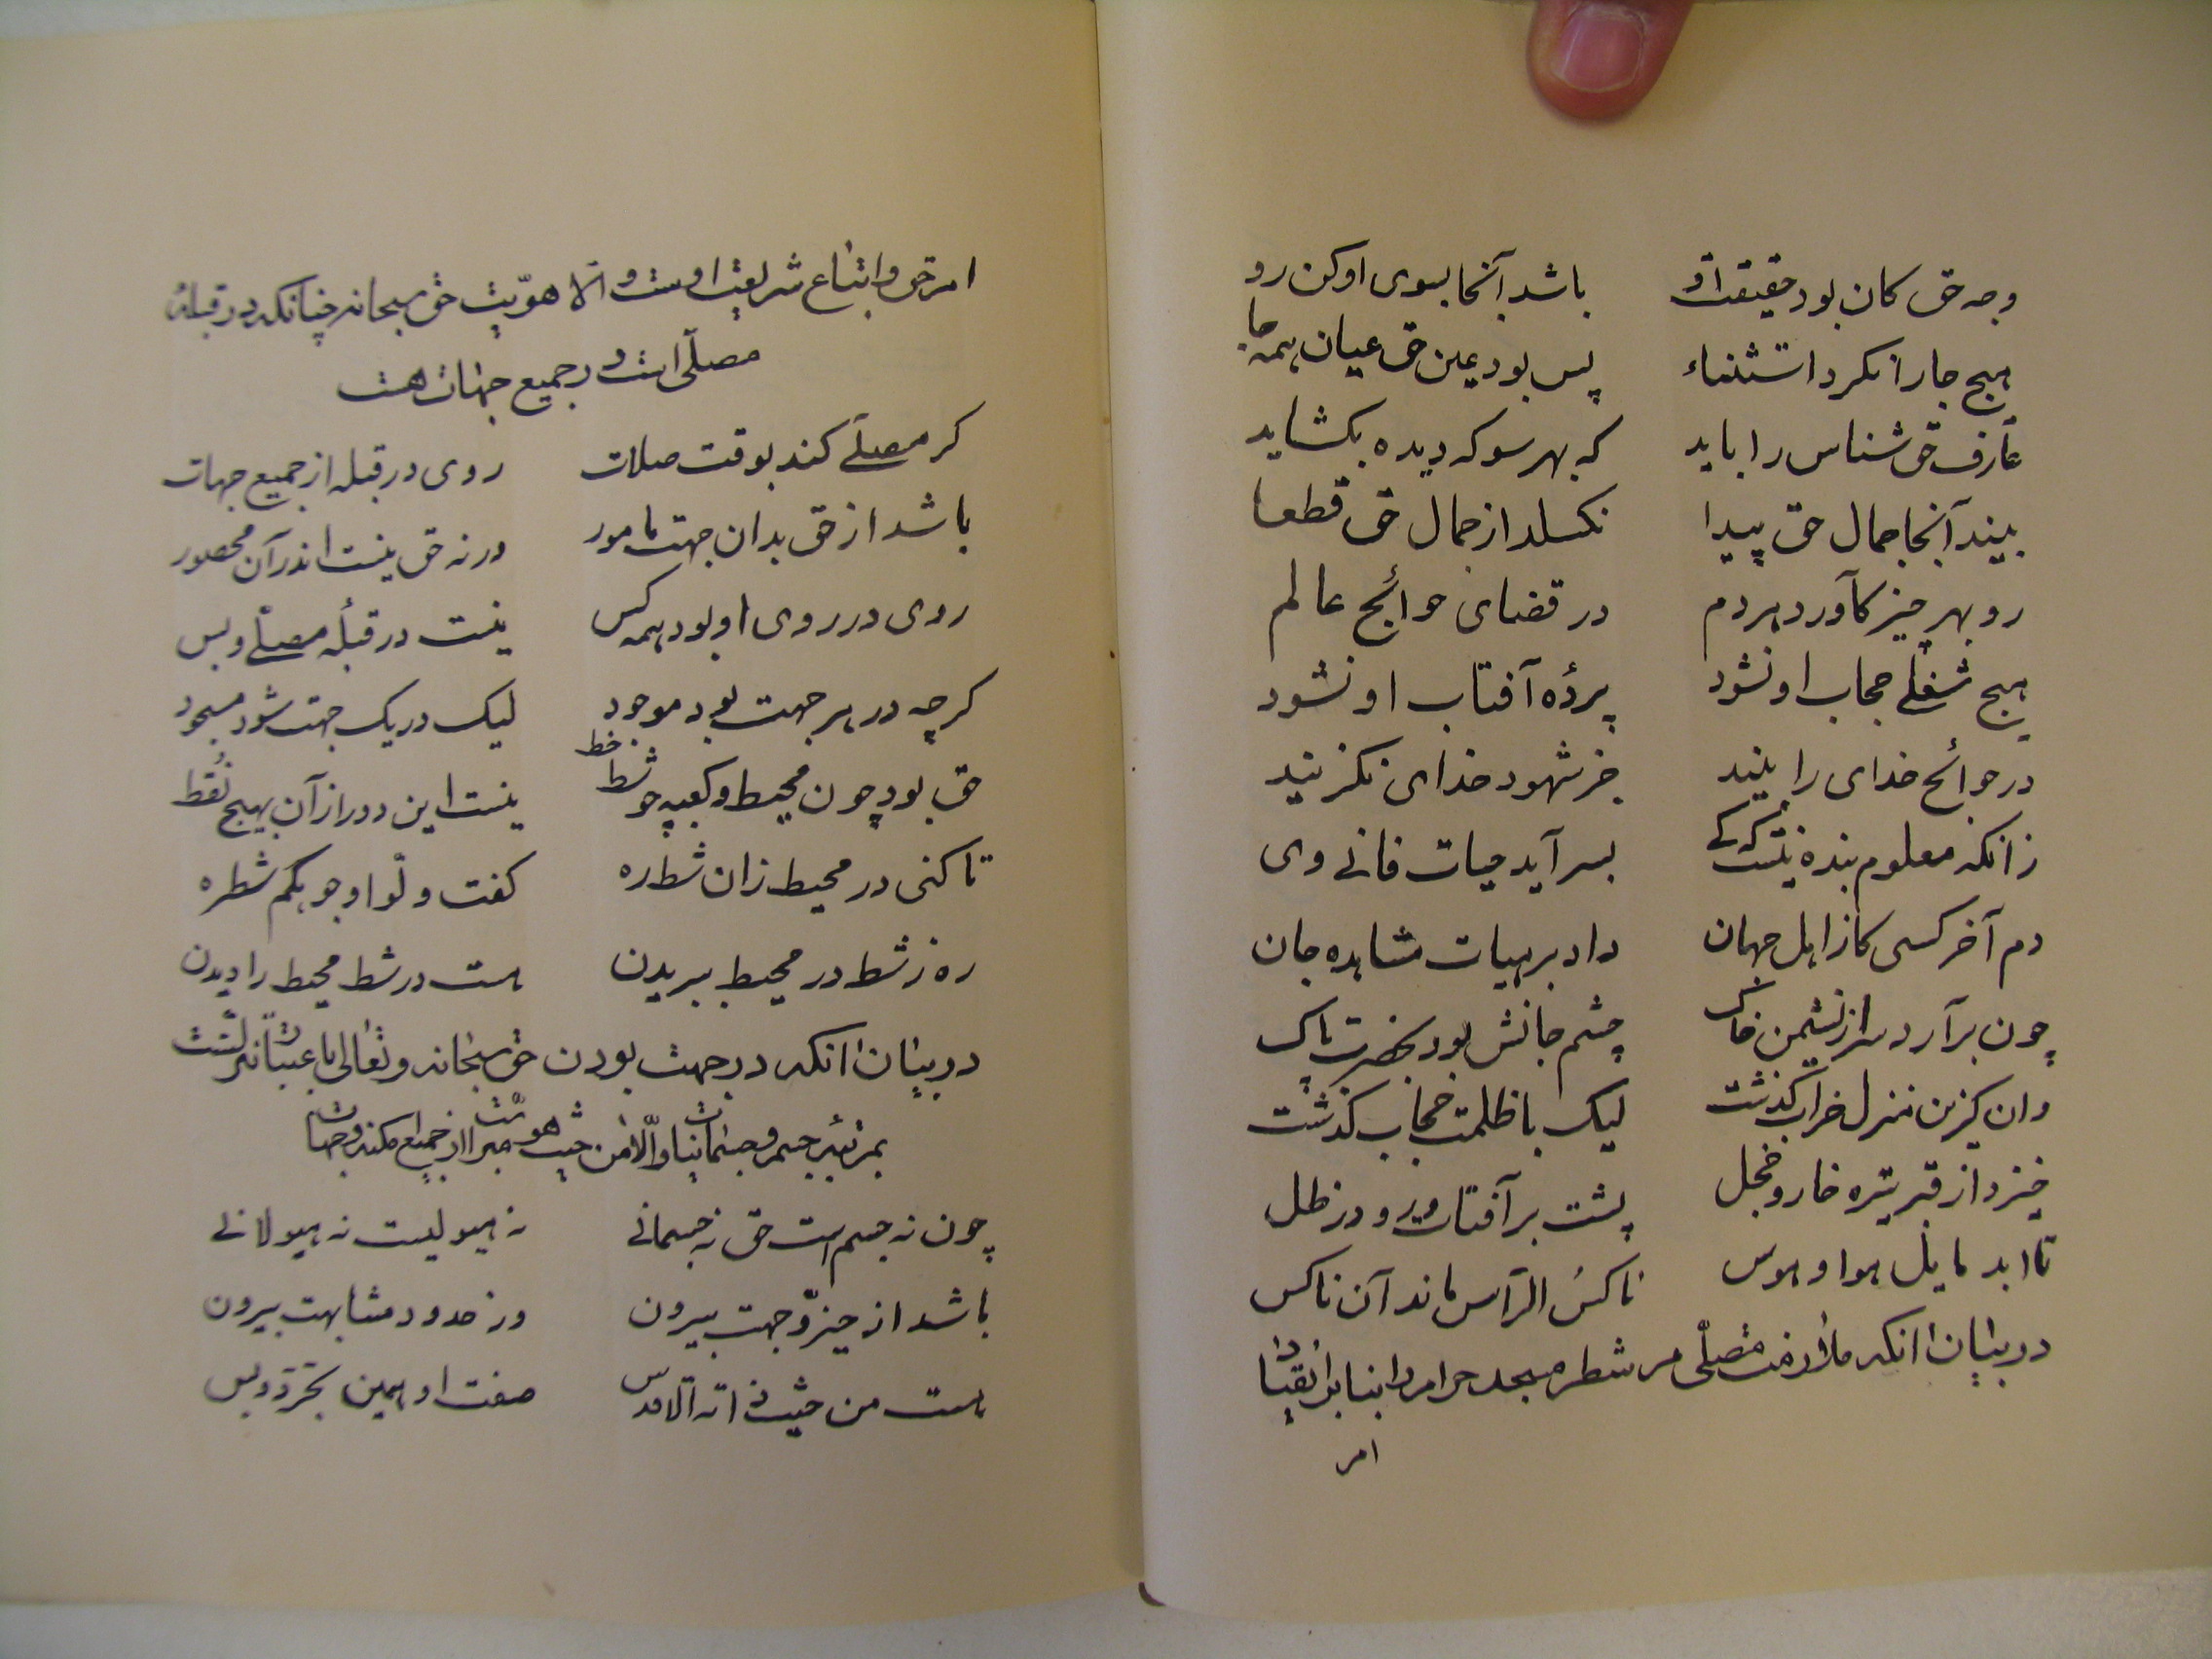 وجه حق کان بود حقیقت او باشد آنجا بسوی او کن رو
هیچ جا را نکرد استثناء پس بود عین حق عیان همه جا
عارف حق شناس را باید که بهر سو که دیده بکشاید
بیند آنجا جمال حق پیدا نکسلد از جمال حق قطعا
رو بهر چیز کآورد هر دم در قضای حوائج عالم
هیچ شغلی حجاب او نشود پردهٔ آفتاب او نشود
در حوائج خدای را بیند جز شهود خدای نکزیند
زانکه معلوم بنده نیست که کی بسر آید حیات فانی وی
دم آخر کسی کاز اهل جهان داد بر هیات مشاهده جان
چون برآرد سر از نشیمن خاک چشم جانش بود بحضرت پاک
وان کزین منزل خراب کذشت لیک با ظلمت حجاب کذشت
خیزد از قبر تیره خار و خجل پشت بر آفتاب و رو در ظل
تا ابد مایل هوا و هوس ناکسُ الرّأس ماند آن ناکس
در بیان آنکه ملازمت مصلّی مر شطر مسجد حرام را بنا بر انقیاد
امر
امر حق و اتباع شریعت اوست و الّا هویّت حق سبحانه چنانکه در قبلهٔ
مصلّی است در جمیع جهات هست
کر مصلّی کند بوقت صلات روی در قبله از جمیع جهات
باشد از حق بدان جهت مامور ورنه حق نیست اندر آن محصور
روی در روی او بود همه کس نیست در قبلهٔ مصلّی و بس
کرچه در هر جهت بود موجود لیک در یک جهت شود مسجود
حق بود چون محیط و کعبه چو شط خط نیست این دور از آن بهیچ نُقط
تا کنی در محیط زان شط ره کفت ولّوا وجوهکم شطره
ره ز شط در محیط ببریدن هست در شط محیط را دیدن
در بیان آنکه در جهت بودن حق سبحانه و تعالی باعتبار
بمرتبهٔ جسم و جسمانیات و الّا من حیث هویّت مبرّا از جمیع امکنه و جهات
چون نه جسم است حق نه جسمانی نه هیولیست نه هیولانی
باشد از حیّز و جهت بیرون وز حدود مشابهت بیرون
هست من حیث ذاته الاقدس صفت او همین تجرّد و بس